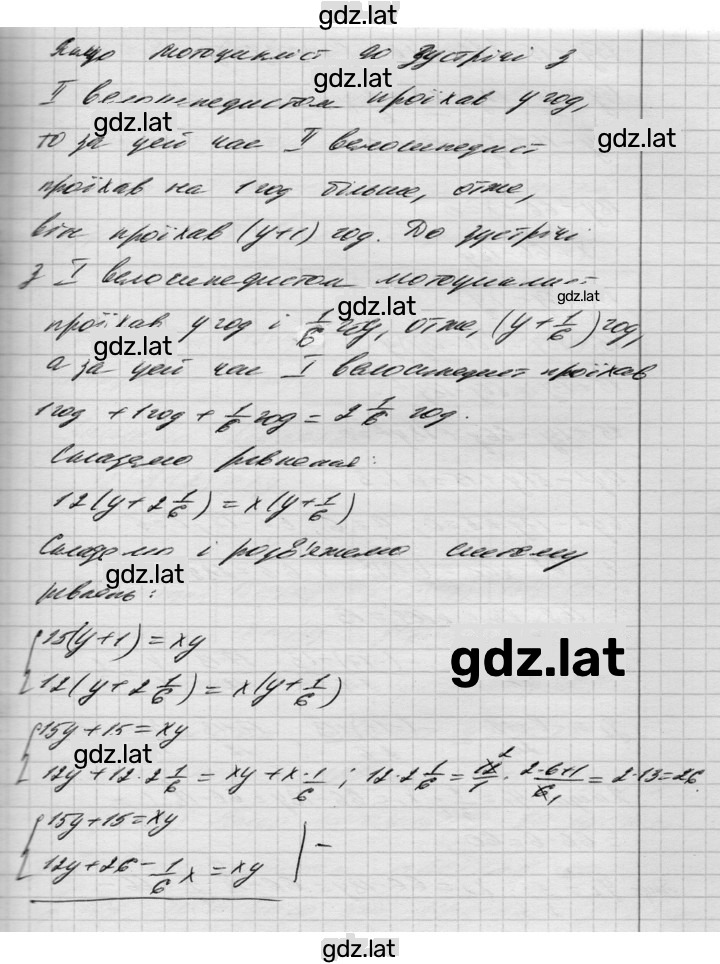 gdz.lat
Якщо мотоцикліст до зустрічі з
gdz.lat
II велосипедистом проїхав y год,
gdz.lat
то за цей час II велосипедист
gdz.lat
проїхав на 1 год більше, отже,
він проїхав (y+1) год. До зустрічі
з I велосипедистом мотоцикліст
gdz.lat
gdz.lat
проїхав y год і 1/6 год, отже, (y + 1/6) год,
gdz.lat
а за цей час I велосипедист проїхав
1 год + 1 год + 1/6 год = 2 1/6 год.
Складемо рівняння:
12(y + 2 1/6) = x(y + 1/6)
Складемо і розв'яжемо систему
gdz.lat
рівнянь:
15(y+1) = xy
gdz.lat
12(y + 2 1/6) = x(y + 1/6)
15y + 15 = xy
gdz.lat
12y + 12·2 1/6 = xy + x·1/6 ; 12·2 1/6 = 12/1 · 2·6+1/6 = 2·13 = 26.
15y + 15 = xy
12y + 26 - 1/6 x = xy | -
gdz.lat